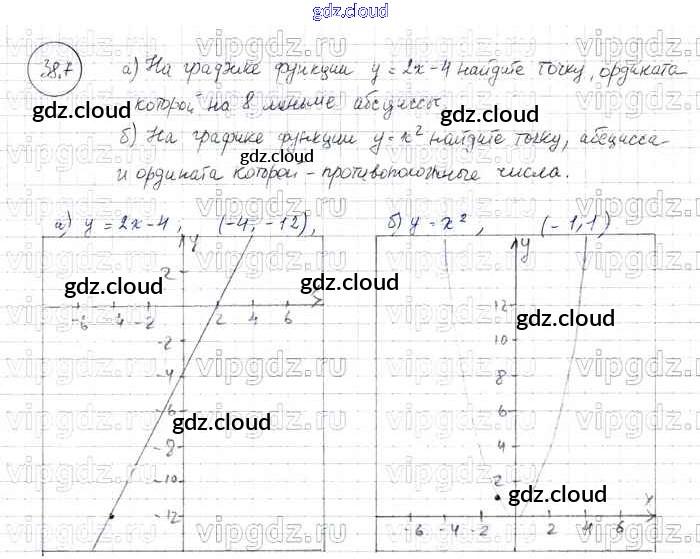 gdz.cloud
38.7 а) На графике функции y = 2x - 4 найдите точку, ордината
которой на 8 меньше абсциссы.
б) На графике функции y = x² найдите точку, абсцисса
и ордината которой - противоположные числа.
а) y = 2x - 4, (-4; -12), б) y = x², (-1; 1)
y
2
-6 -4 -2 2 4 6 x
-2
-4
-6
-8
-10
-12
y
12
10
8
4
2
-6 -4 -2 2 4 6 x
gdz.cloud
gdz.cloud
gdz.cloud
gdz.cloud
gdz.cloud
gdz.cloud
gdz.cloud
vipgdz.ru